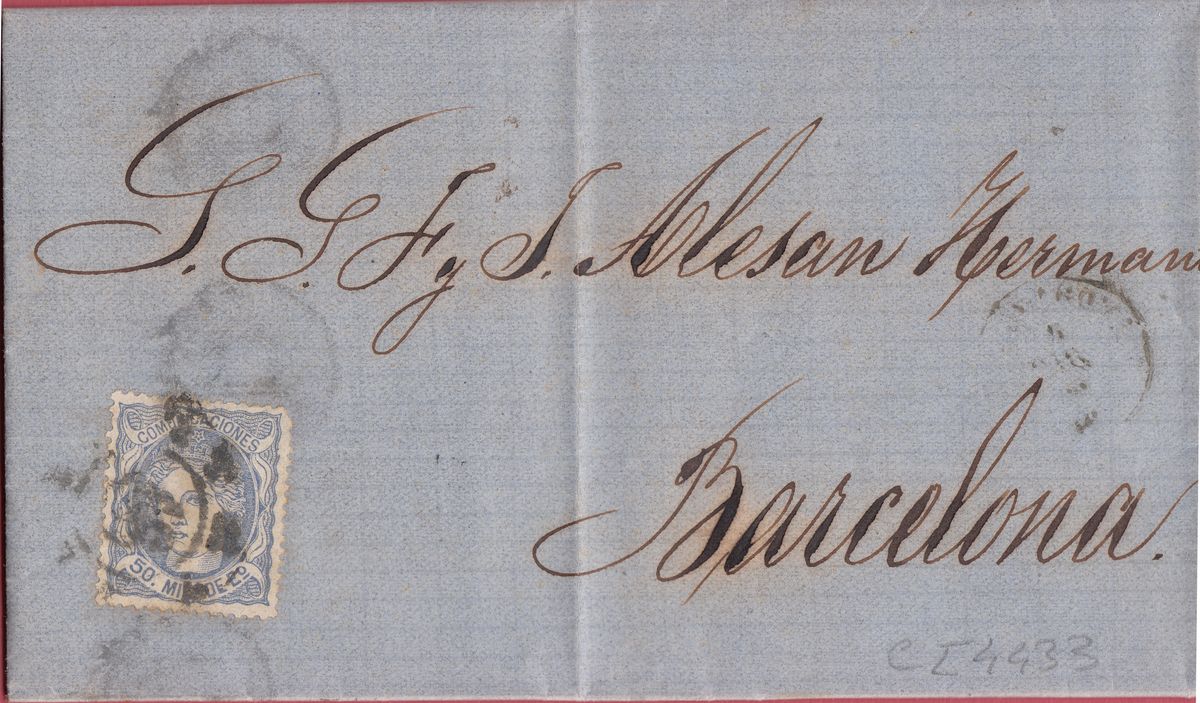 S. S. F y J. Alesan Herman
Barcelona.
COMUNICACIONES
50. MILS DE Eº
CI4433